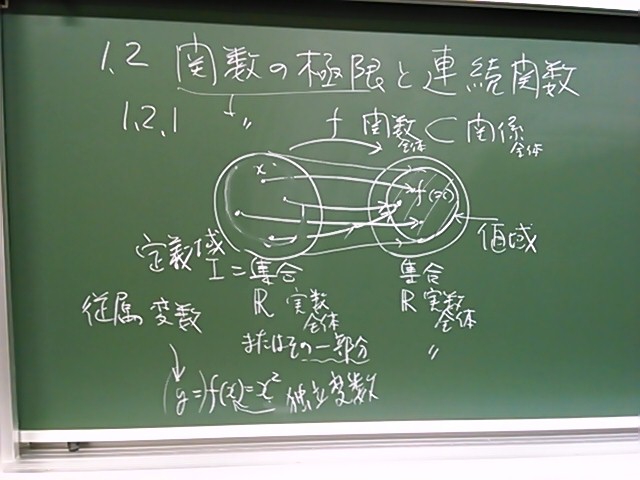 1.2 関数の極限と連続関数
1.2.1 〃
f 関数全体 ⊂ 関係全体
x f(x)
値域
定義域
I = 集合 集合
R 実数全体 R 実数全体
従属変数
またはその一部分 〃
(y=)f(x)=x² 独立変数